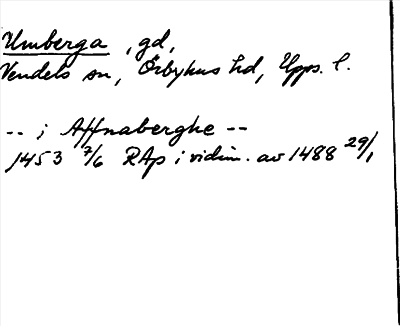 Umberga, gd,
Vendels sn, Örbyhus hd, Upps. l.
-- i Affnaberghe --
1453 7/6 RAp i vidim. av 1488 29/1